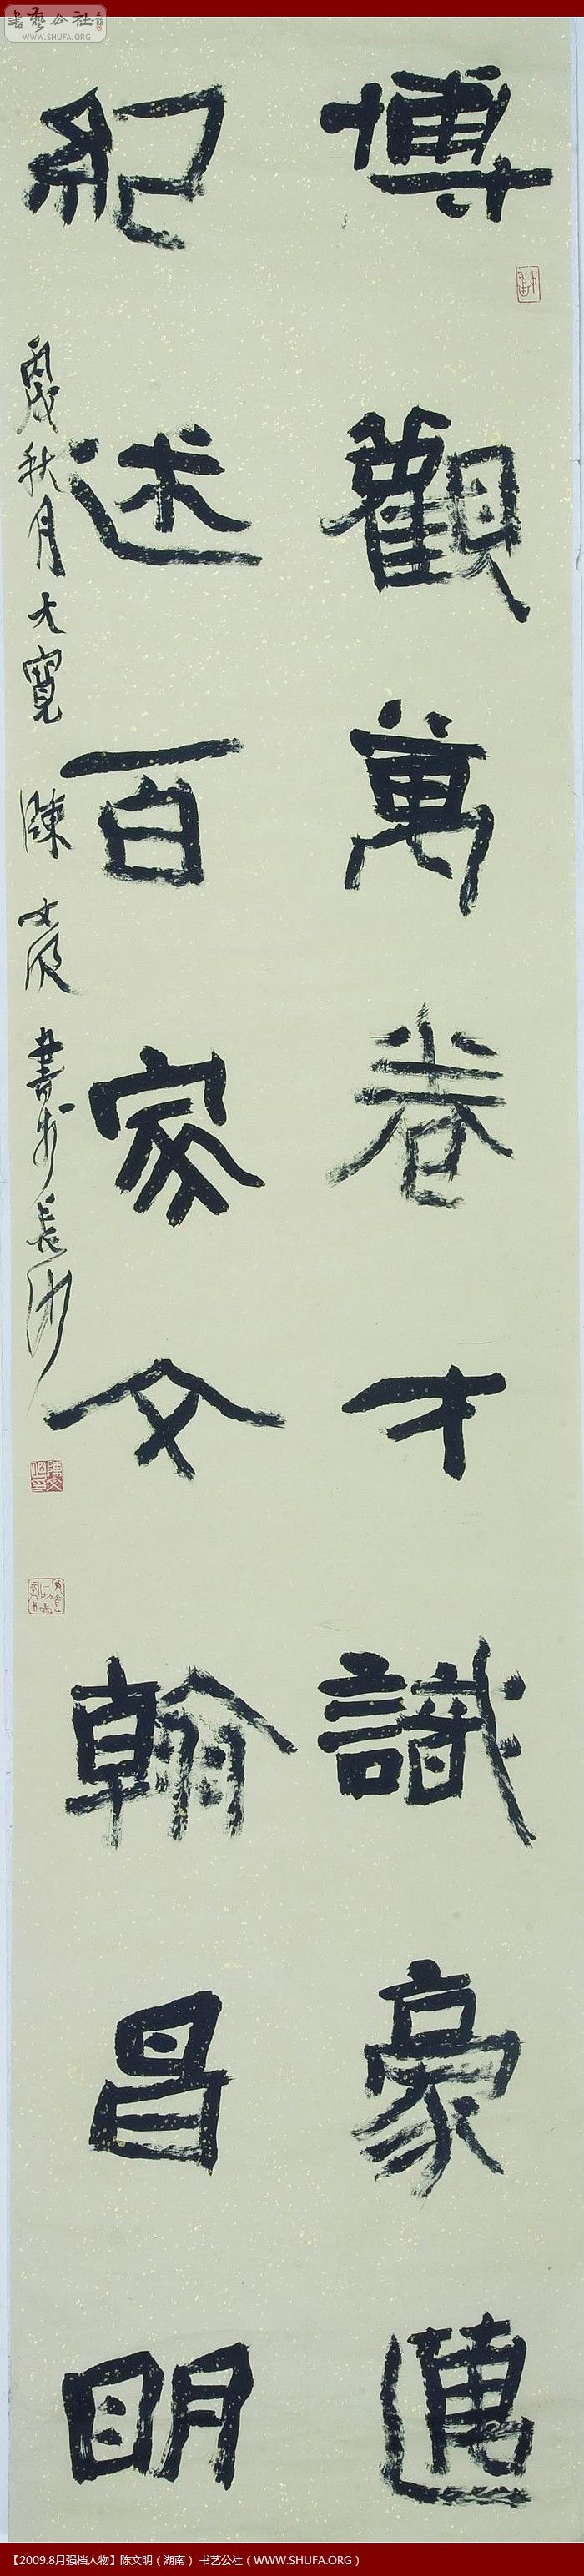 書藝公社
WWW.SHUFA.ORG
博觀萬卷才識豪邁
紀述百家文翰昌明
丙戌秋月大寬陳文明書於長沙
【2009.8月强档人物】陈文明（湖南） 书艺公社（WWW.SHUFA.ORG）